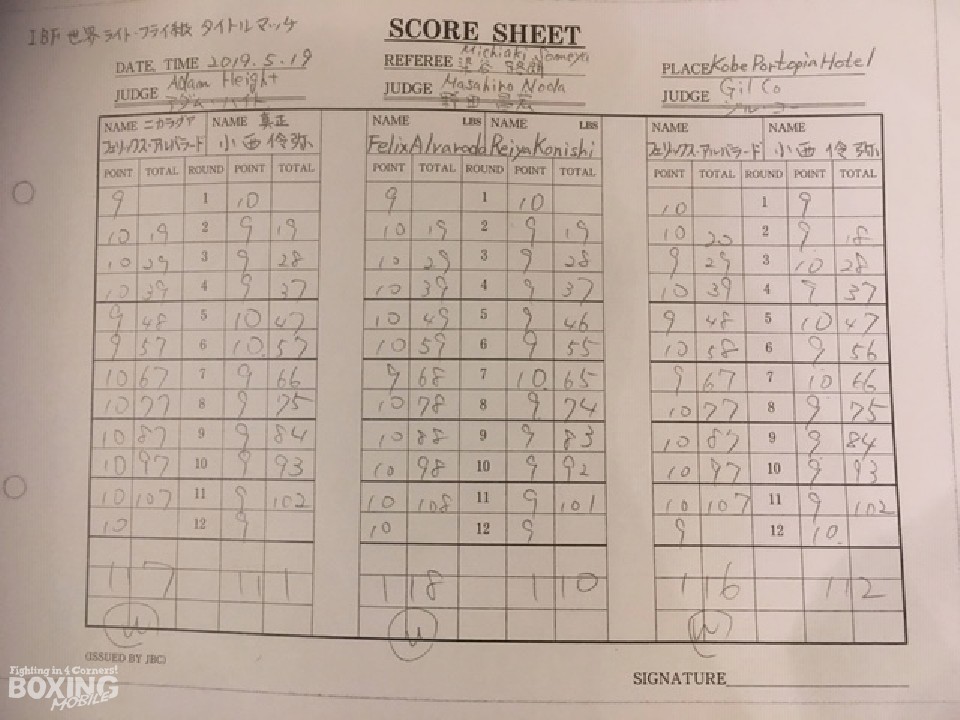 IBF 世界 ライト・フライ級 タイトルマッチ
SCORE SHEET
DATE, TIME 2019.5.19 REFEREE Michiaki Someya PLACE Kobe Portopia Hotel
JUDGE Adam Height JUDGE Masahiro Noda JUDGE Gil Co
アダム・ハイト 野田 昌宏 ジル・コー
NAME ニカラグア NAME 真正 NAME LBS NAME LBS NAME NAME
フェリックス・アルバラード 小西 伶弥 Felix Alvarado Reiya Konishi フェリックス・アルバラード 小西 伶弥
POINT TOTAL ROUND POINT TOTAL POINT TOTAL ROUND POINT TOTAL POINT TOTAL ROUND POINT TOTAL
9 1 10 9 1 10 10 1 9
10 19 2 9 19 10 19 2 9 19 10 20 2 9 18
10 29 3 9 28 10 29 3 9 28 9 29 3 10 28
10 39 4 9 37 10 39 4 9 37 10 39 4 9 37
9 48 5 10 47 10 49 5 9 46 9 48 5 10 47
9 57 6 10 57 10 59 6 9 55 10 58 6 9 56
10 67 7 9 66 9 68 7 10 65 9 67 7 10 66
10 77 8 9 75 10 78 8 9 74 10 77 8 9 75
10 87 9 9 84 10 88 9 9 83 10 87 9 9 84
10 97 10 9 93 10 98 10 9 92 10 97 10 9 93
10 107 11 9 102 10 108 11 9 101 10 107 11 9 102
10 12 9 10 12 9 9 12 10
117 111 118 110 116 112
(ISSUED BY JBC)
SIGNATURE
Fighting in 4 Corners!
BOXING
MOBILE